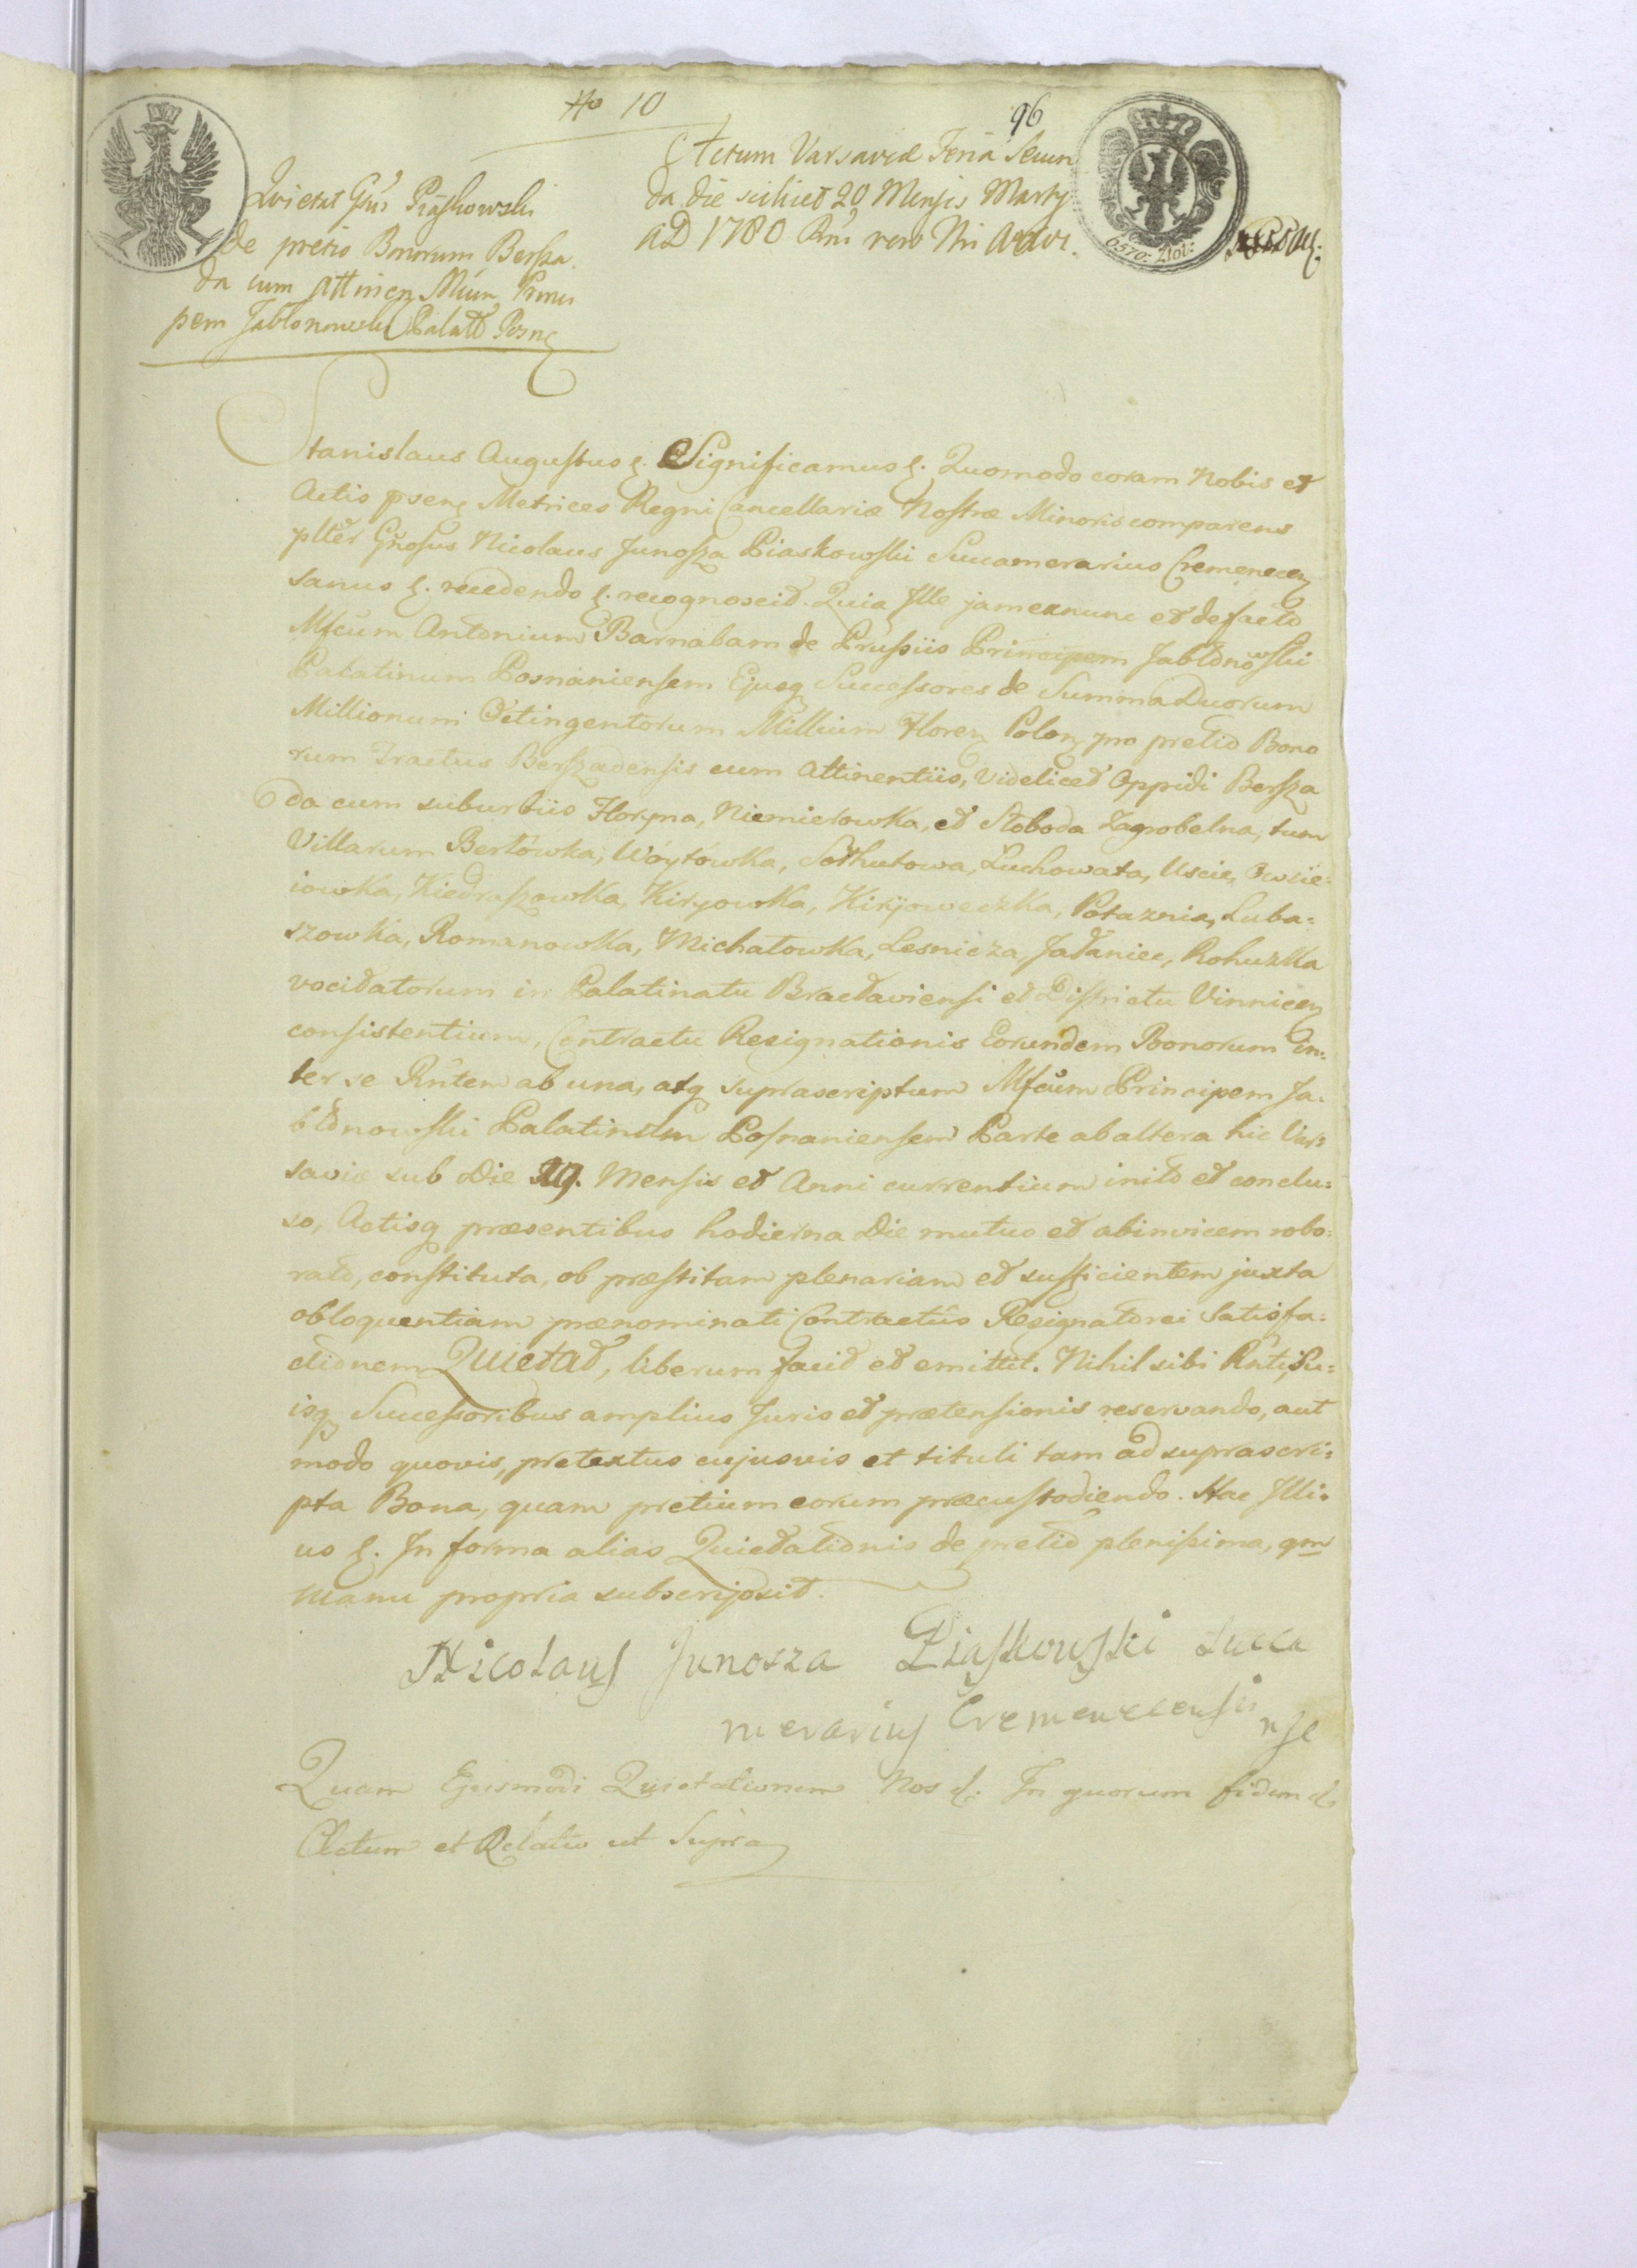 No 10
96
Actum Varsaviæ Feria Secun
da die scilicet 20 Mensis Martÿ
AD 1780 Rni vero Nri
Quietat Gnus Piaskowski
de pretio Bonorum Bersza
da cum Attinen Princi
pem Jabłonowski Palatt Posn
6570: Złot:
Stanislaus Augustus &. Significamus &. Quomodo coram Nobis et
Actis psen Metrices Regni Cancellariæ Nostræ Minoris comparens
plter Gnosus Nicolaus Junosza Piaskowski Succamerarius Cremenecen
sanus &. recedendo &. recognoscit. Quia Ille jam exnunc et defacto
Mfcum Antonium Barnabam de Prussiis Principem Jabłonowski
Palatinum Posnaniensem Ejusq Successores de Summa Duorum
Millionum Octingentorum Millium Floren Polon pro pretio Bono
rum Tractus Berszadensis cum Attinentiis, videlicet Oppidi Bersza
da cum suburbiis Floryna, Niemierowka, et Słoboda Zagrobelna, tum
Villarum Berłowka, Woytowka, Sołhutowa, Luchowata, Uscie, Owsie=
iowka, Kiedraszowka, Kiryowka, Kirÿoweczka, Potaznia, Luba=
szowka, Romanowka, Michałowka, Lesnicza, Jałaniec, Rohuzka
vocitatorum in Palatinatu Bracłaviensi et Districtu Vinnicen
consistentium, Contractu Resignationis Eorundem Bonorum in=
ter se Rntem ab una, atq suprascriptum Mfcum Principem Ja=
błonowski Palatinum Posnaniensem Parte ab altera hic Var=
saviæ sub Die 19. Mensis et Anni currentium inito et conclu=
so, Actisq præsentibus hodierna Die mutuo et abinvicem robo=
rato, constituta, ob præstitam plenariam et sufficientem juxta
obloquentiam prænominati Contractûs Resignatorei Satisfa=
ctionem Quietat, liberum facit et emittit. Nihil sibi Rnti, Su=
isq Successoribus amplius Juris et prætensionis reservando, aut
modo quovis, pretextus cujusvis et tituli tam ad suprascri=
pta Bona, quam pretium eorum præcustodiendo. Hac Illi=
us &. In forma alias Quietationis de pretio plenissima, qm
manu propria subscripsit.
Nicolaus Junosza Piaskowski Succa
merarius Cremenecensis
Quam Ejusmodi Quietationem Nos &. In quorum fidem &
Actum et Datum ut Supra